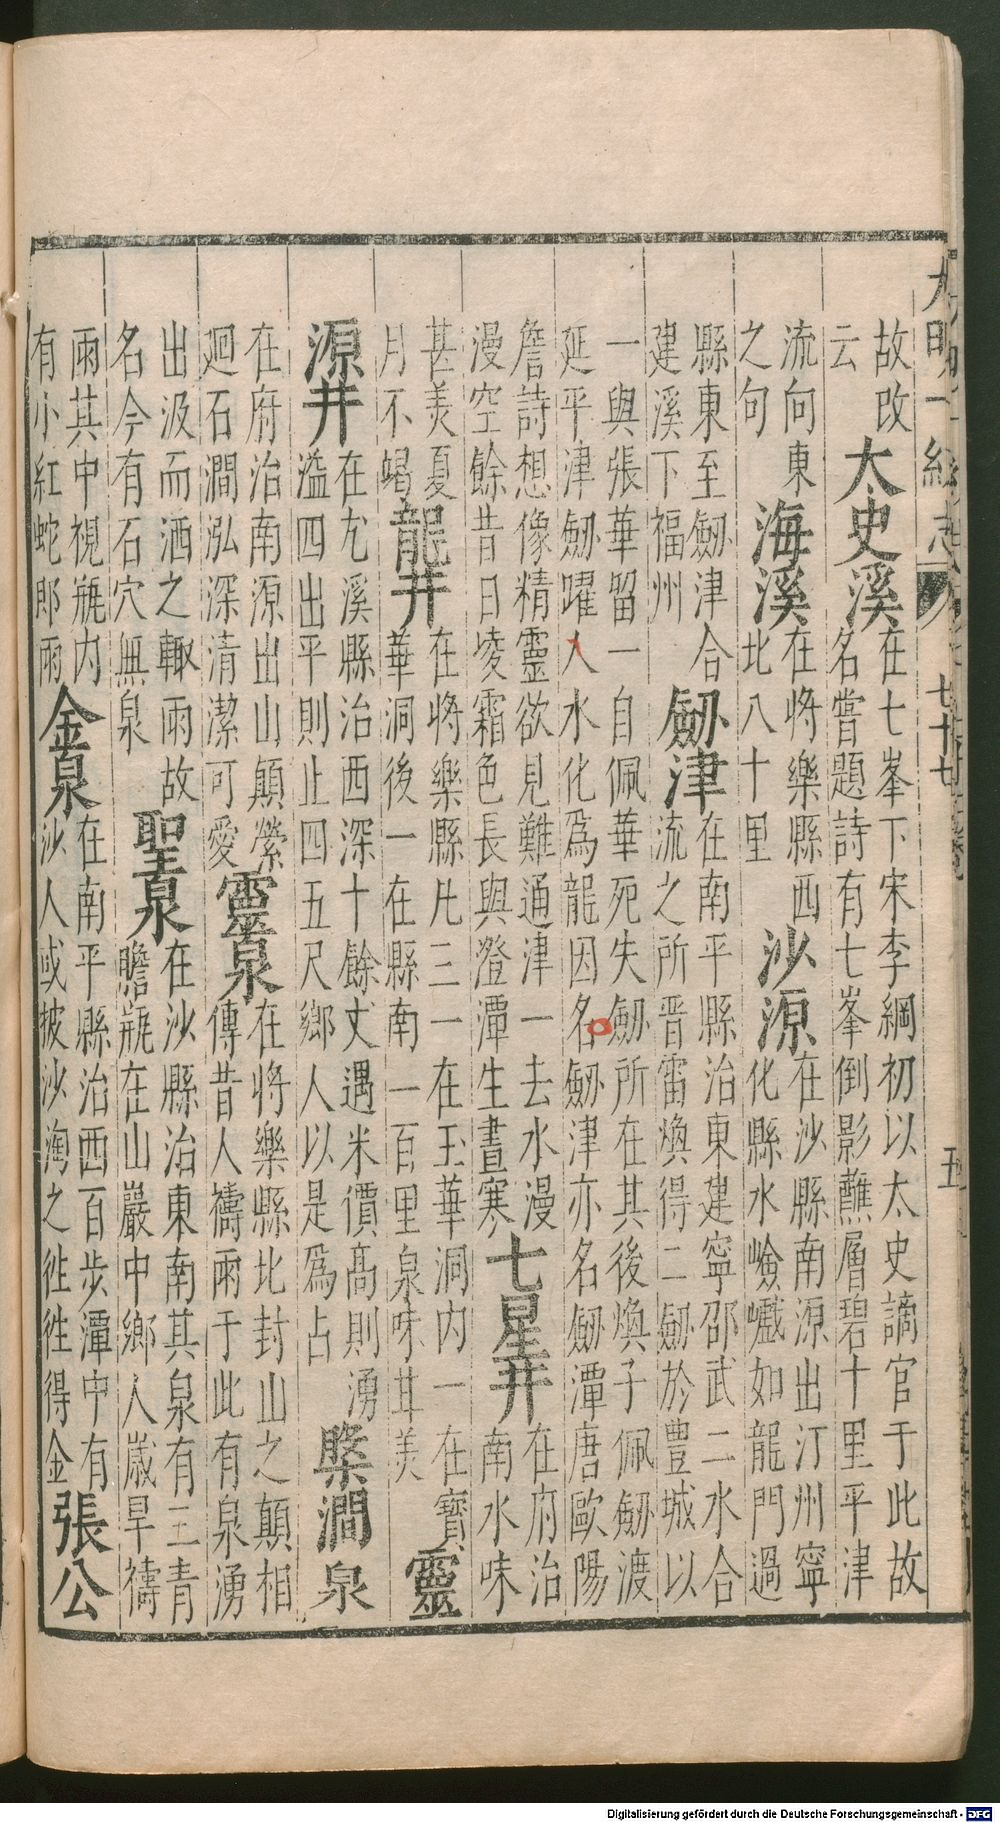 大明一統志 卷七十七 五
故改
云
太史溪
在七峯下宋李綱初以太史謫官于此故
名嘗題詩有七峯倒影蘸層碧十里平津
流向東
之句
海溪
在將樂縣西
北八十里
沙源
在沙縣南源出汀州寧
化縣水嶮巇如龍門過
縣東至劒津合
建溪下福州
劒津
在南平縣治東建寧邵武二水合
流之所晉雷煥得二劒於豐城以
一與張華留一自佩華死失劒所在其後煥子佩劒渡
延平津劒躍入水化爲龍因名劒津亦名劒潭唐歐陽
詹詩想像精靈欲見難通津一去水漫
漫空餘昔日凌霜色長與澄潭生晝寒
七星井
在府治
南水味
甚美夏
月不竭
龍井
在將樂縣凡三一在玉華洞内一在寶
華洞後一在縣南一百里泉味甘美
靈
源井
在尤溪縣治西深十餘丈遇米價高則湧
溢四出平則止四五尺鄉人以是爲占
槩澗泉
在府治南源出山顛縈
廻石澗泓深清潔可愛
靈泉
在將樂縣北封山之顛相
傳昔人禱雨于此有泉湧
出汲而洒之輙雨故
名今有石穴無泉
聖泉
在沙縣治東南其泉有三青
瞻瓶在山巖中鄉人歲旱禱
雨其中視瓶内
有小紅蛇即雨
金泉
在南平縣治西百步潭中有
沙人或披沙淘之徃徃得金
張公
Digitalisierung gefördert durch die Deutsche Forschungsgemeinschaft - DFG